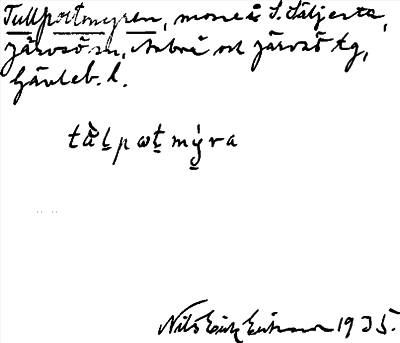 Tullportmyren, mosse å S. Säljesta,
Järvsö sn, Arbrå och Järvsö tg,
Gävleb. l.
tὰlpωtmýra
Nils Erik Eriksson 1935.